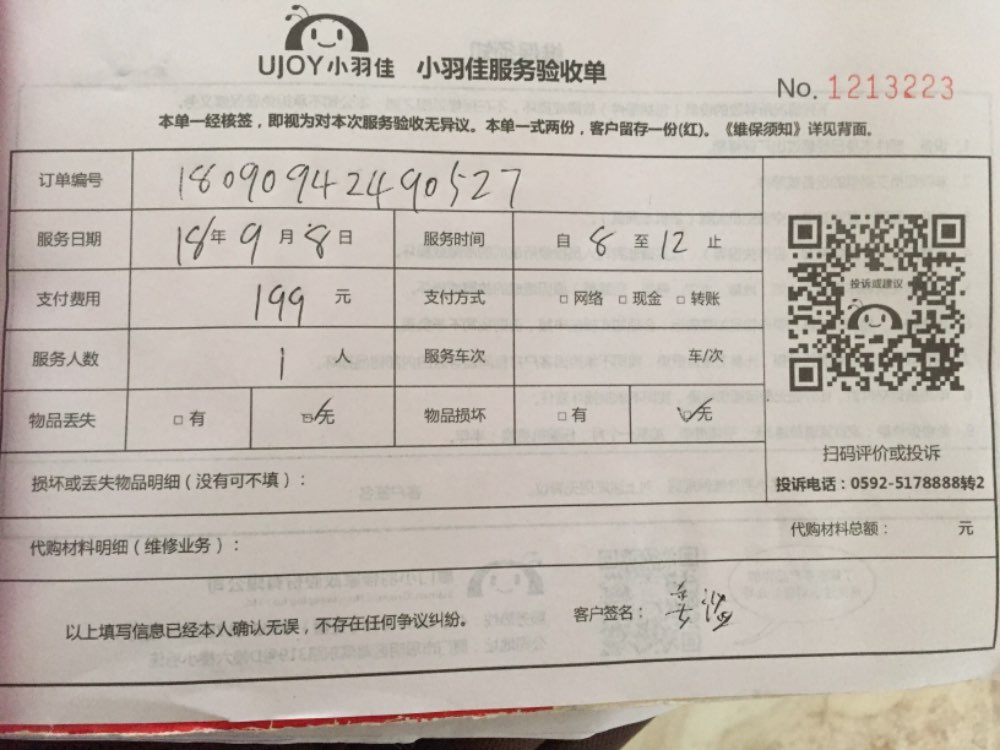 UJOY小羽佳 小羽佳服务验收单
No. 1213223
本单一经核签，即视为对本次服务验收无异议。本单一式两份，客户留存一份(红)。《维保须知》详见背面。
订单编号 18090942490527
服务日期 18年9月8日 服务时间 自8至12止
支付费用 199元 支付方式 □网络 □现金 □转账
投诉或建议
服务人数 1人 服务车次 车/次
物品丢失 □有 ☑无 物品损坏 □有 ☑无
扫码评价或投诉
投诉电话：0592-5178888转2
损坏或丢失物品明细（没有可不填）：
代购材料明细（维修业务）： 代购材料总额： 元
以上填写信息已经本人确认无误，不存在任何争议纠纷。 客户签名：